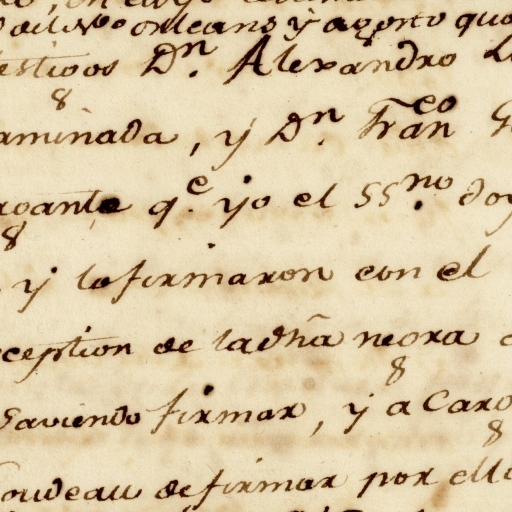 orleans y agosto
estigos Dn. Alexandro
aminada, y Dn. Franco
rgante qe. yo el SSno. doy
y lo firmaron con el
ception de la dhã negra
saviendo firmar, y a Caro
oudeau de firmar por ella